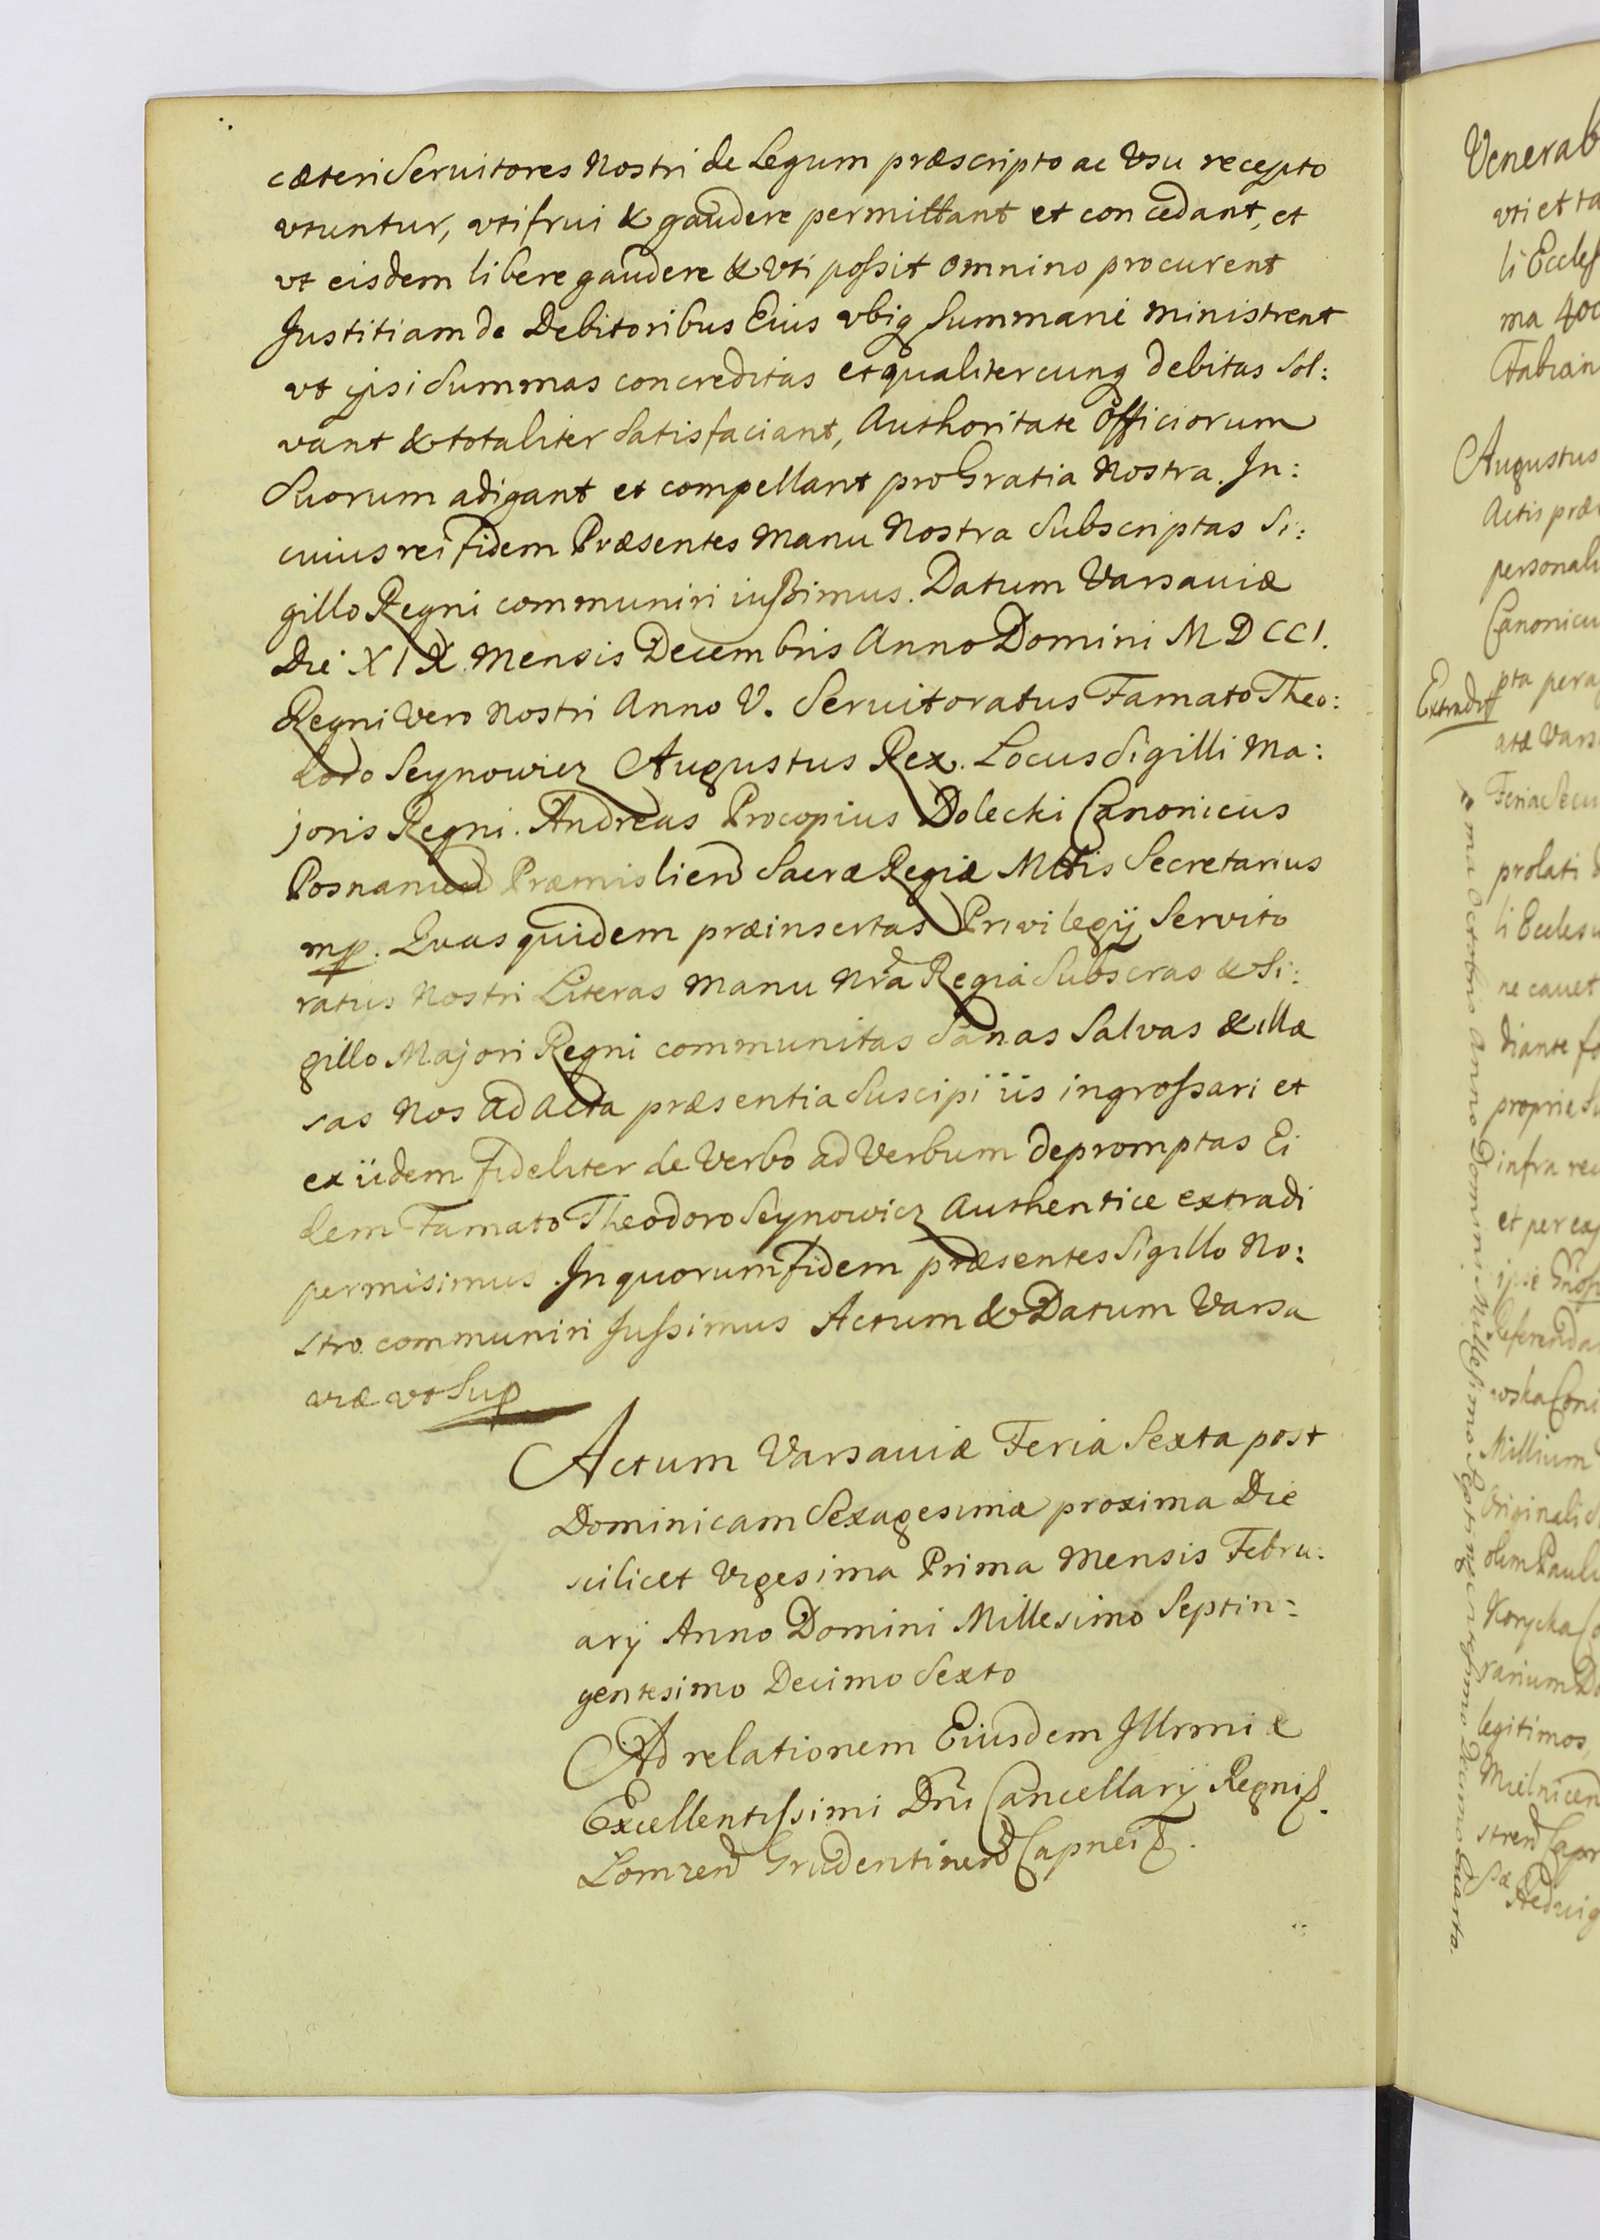 cæteri Servitores Nostri de Legum præscripto ac Vsu recepto
vtuntur, vti frui & gaudere permittant et concedant, et
vt eisdem libere gaudere & Vti possit omnino procurent
Justitiam de Debitoribus Eius vbiq Summarie ministrent
vt ipsi Summas concreditas et qualitercunq debitas Sol:
vant & totaliter Satisfaciant, Authoritate Officiorum
Suorum adigant et compellant pro Gratia Nostra. In:
cuius rei fidem Præsentes Manu Nostra Subscriptas Si:
gillo Regni communiri iussimus. Datum Varsaviæ
Die XIX Mensis Decembris Anno Domini MDCCI.
Regni Vero Nostri Anno V. Servitoratus Famato Theo:
doro Seynowicz Augustus Rex. Locus Sigilli Ma:
joris Regni. Andreas Procopius Dolecki Canonicus
Posnanien Præmislien Sacræ Regiæ Mttis Secretarius
mp. Quas quidem præinsertas Privilegij Servito
ratus Nostri Literas Manu Nra Regia Subscras & Si:
gillo Majori Regni communitas Sanas Salvas & illæ
sas Nos ad Acta præsentia Suscipi iis ingrossari et
ex iidem fideliter de Verbo ad Verbum depromptas Ei
dem Famato Theodoro Seynowicz Authentice extradi
permisimus. In quorum fidem præsentes Sigillo No:
stro communiri Jussimus Actum & Datum Varsa
viæ vt Sup
Actum Varsaviæ Feria Sexta post
Dominicam Sexagesimæ proxima Die
scilicet Vigesima Prima Mensis Febru:
arij Anno Domini Millesimo Septin:
gentesimo Decimo Sexto
Ad relationem Eiusdem Illrmi &
Excellentissimi Dni Cancellarij Regni
Lomzen Grudentinen Capnei
Venerab
vti et ta
li Eccles
ma 400
Fabian
Augustus
Actis præ
personali
Canonicu
pta perag
Extradit
atæ Vars
Feria Secu
prolati
li Eccles
ne cavet
diante fo
proprie Su
infra
et per
ipse
Referenda
Millium
Originali
olim Paul
Korycka Co
rarium Do
legitimos,
Mielnicen
stren Capn
Hedwig
ma Octobris Anno Domini Millesimo Septingentesimo Decimo Quarto.